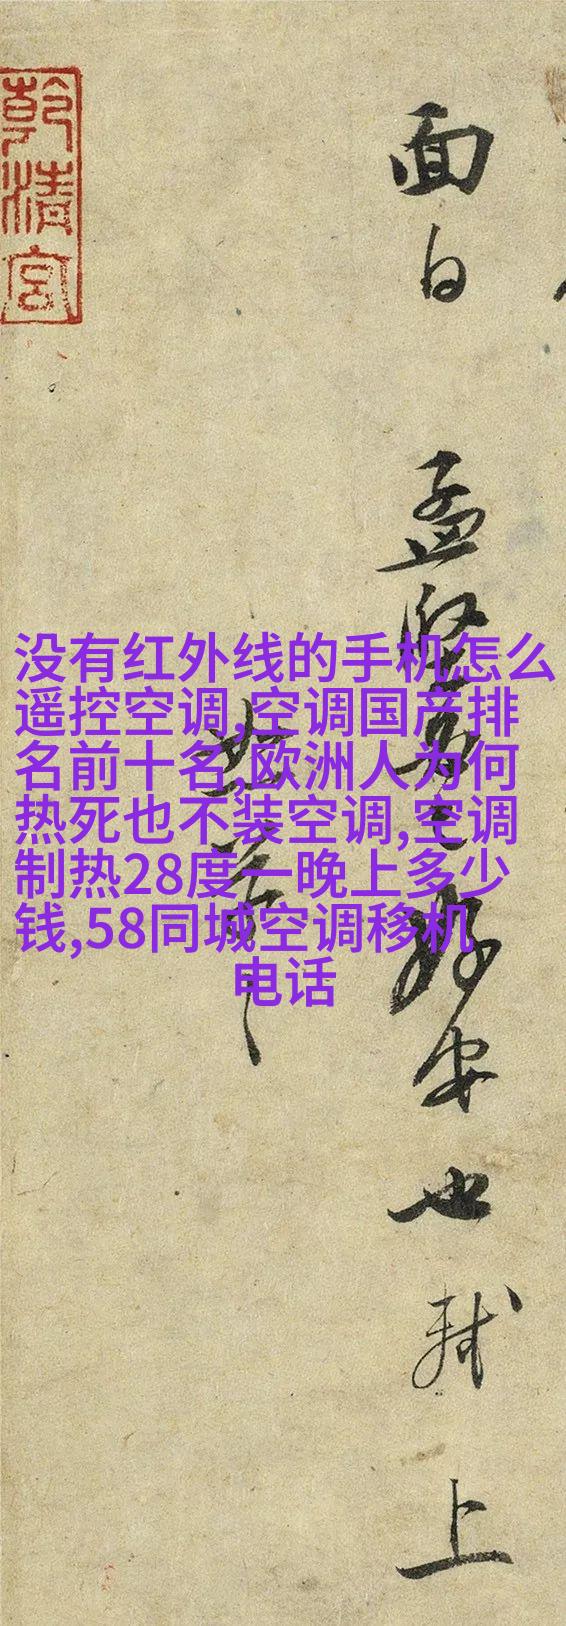 乾清宮
面白 孟堅必已好安也軾上
恕草草
没有红外线的手机怎么
遥控空调,空调国产排
名前十名,欧洲人为何
热死也不装空调,空调
制热28度一晚上多少
钱,58同城空调移机
电话